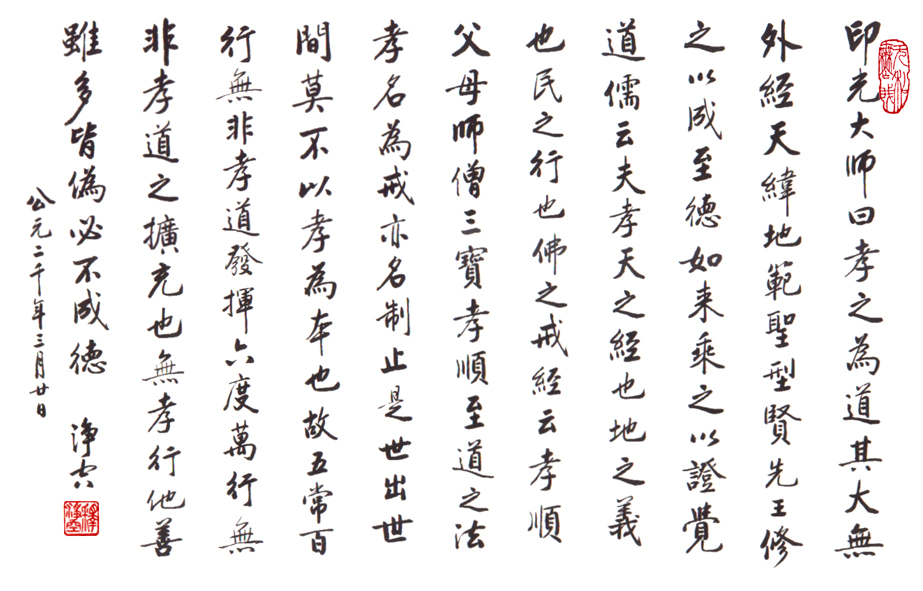 印光大師曰孝之為道其大無
外經天緯地範聖型賢先王修
之以成至德如来乘之以證覺
道儒云夫孝天之經也地之義
也民之行也佛之戒經云孝順
父母師僧三寶孝順至道之法
孝名為戒亦名制止是世出世
間莫不以孝為本也故五常百
行無非孝道發揮六度萬行無
非孝道之擴充也無孝行他善
雖多皆偽必不成德 淨空
公元二千年三月廿日